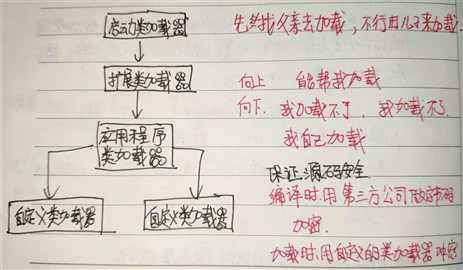 启动类加载器
先找父亲去加载，不行由儿子来加载.
扩展类加载器
向上 能帮我加载
向下. 我加载不了, 我加载不了.
我自己加载
应用程序
类加载器
保证源码安全
编译时.用第三方公司做字节码
加密.
自定义类加载器
自定义类加载器
加载时.用自定义的类加载器